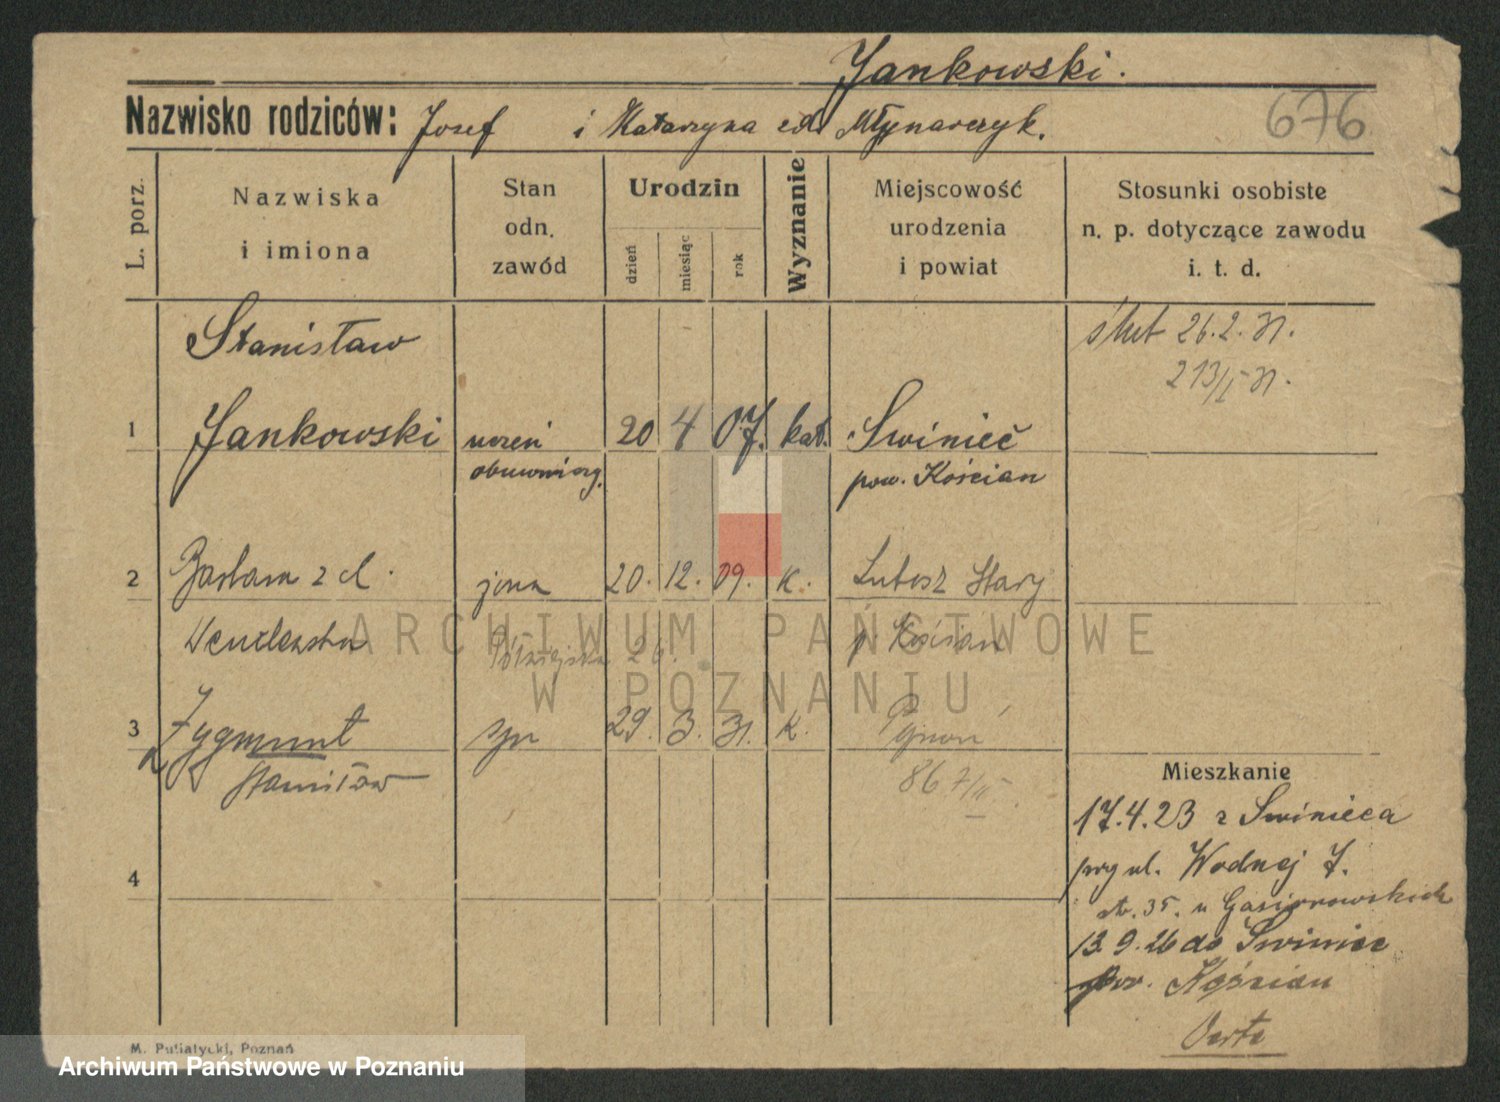 Jankowski.
Nazwisko rodziców: Josef i Katarzyna z d. Młynarczyk.
676
L. porz.
Nazwiska
i imiona
Stan
odn.
zawód
Urodzin
dzień
miesiąc
rok
Wyznanie
Miejscowość
urodzenia
i powiat
Stosunki osobiste
n. p. dotyczące zawodu
i. t. d.
Stanisław
ślub 26.2.31.
213/I 31.
1 Jankowski uczeń 20 4 07. kat. Swinieć
obuwniczy. pow. Kościan
2 z d. żona 20. 12. 09. k. Lubosz Stary
Półwiejska 26. p. Kościan
3 Zygmunt syn 29. 3. 31. k.
Stanisław 867/II
4
Mieszkanie
17.4.23 z Swinieca
przy ul. Wodnej 7.
u Gąsiorowskich
13.9.26 do Swiniec
pow. Kościan
Verte
M. Putiatycki, Poznań
ARCHIWUM PAŃSTWOWE
W POZNANIU
Archiwum Państwowe w Poznaniu